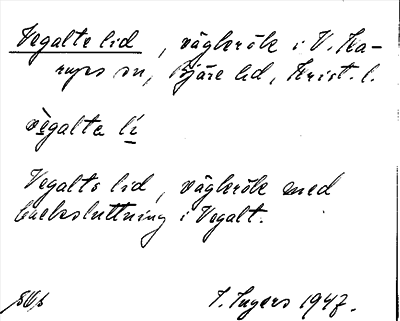 Vegalts lid, vägkrök i V. Ka-
rups sn, Bjäre hd, Krist. l.
vègalta lí
Vegalts lid, vägkrök med
backsluttning i Vegalt.
I. Ingers 1947.